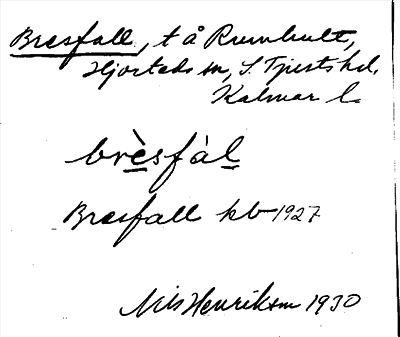 Bresfall, t å Rumhult,
Hjorteds sn, S. Tjusts hd,
Kalmar l.
brèsfàl
Bresfall kb 1927
Nils Henriksson 1930